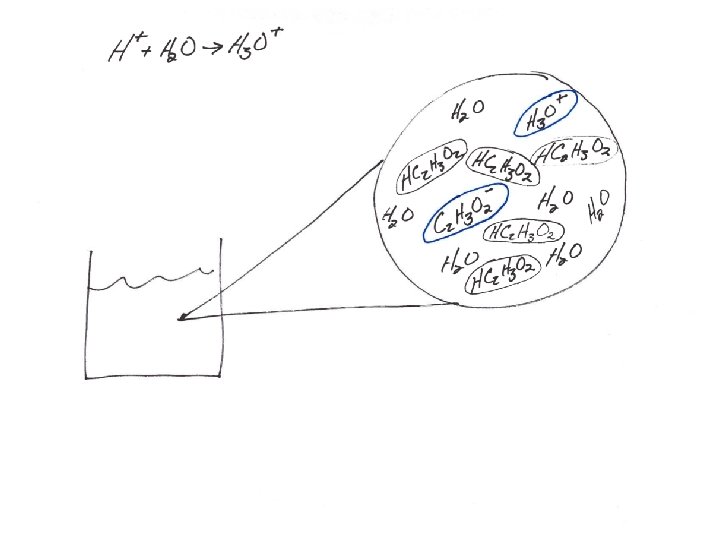 H⁺ + H₂O → H₃O⁺
H₂O
H₃O⁺
HC₂H₃O₂
HC₂H₃O₂
HC₂H₃O₂
H₂O
C₂H₃O₂⁻
H₂O
H₂O
HC₂H₃O₂
H₂O
HC₂H₃O₂
H₂O